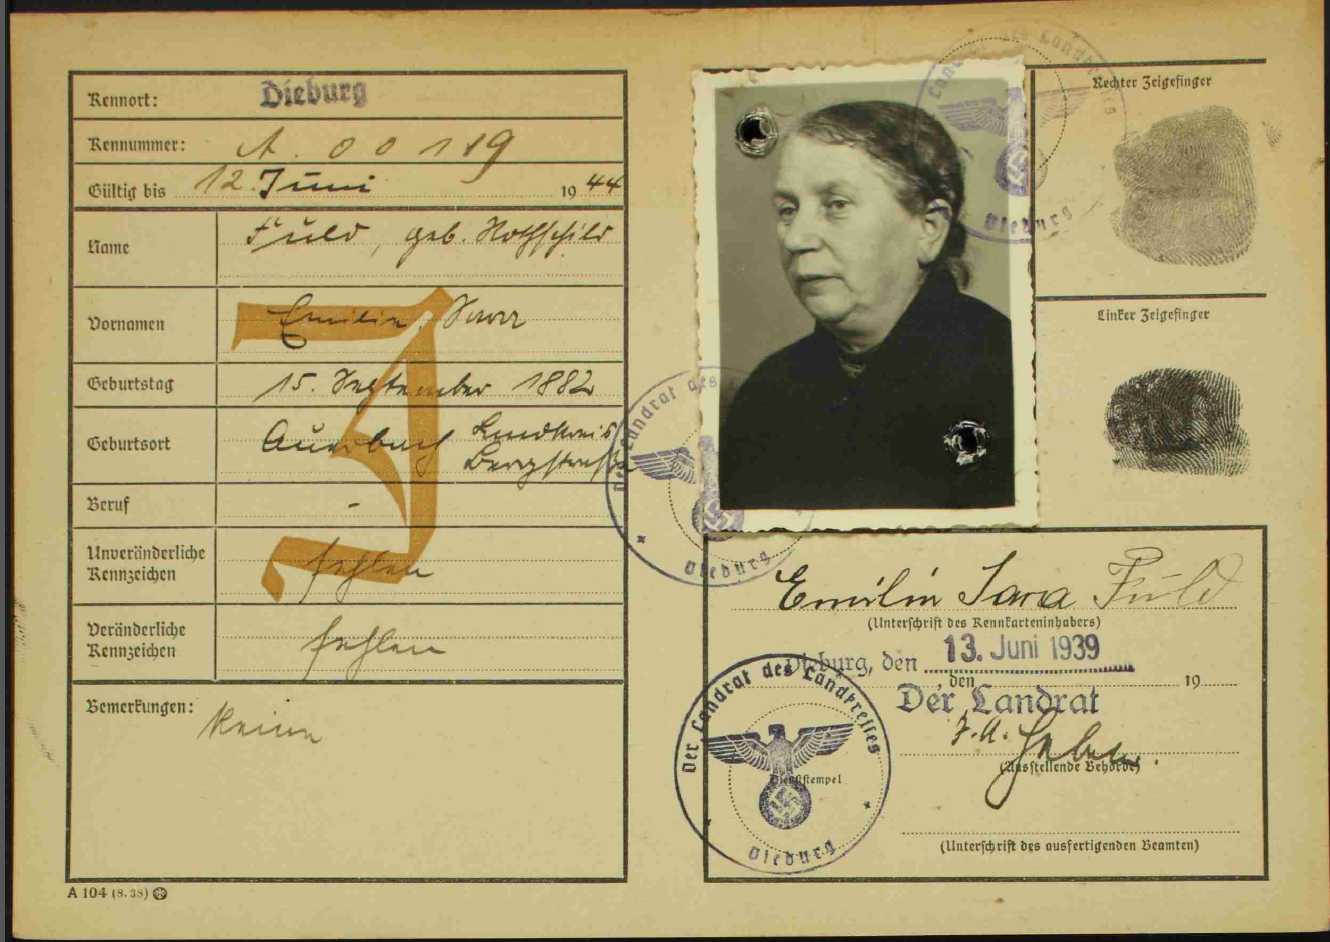 Kennort: Dieburg
Kennummer: A. 00119
Gültig bis 12. Juni 1944
Name Fuld, geb. Rothschild
Vornamen Emilie Sara
Geburtstag 15. September 1882
Geburtsort Auerbach Landkreis
Bergstraße
Beruf -
Unveränderliche
Kennzeichen fehlen
Veränderliche
Kennzeichen fehlen
Bemerkungen: keine
J
A 104 (8. 38)
Rechter Zeigefinger
Linker Zeigefinger
Der Landrat des
Dieburg
Emilie Sara Fuld
(Unterschrift des Kennkarteninhabers)
Dieburg, den 13. Juni 1939
, den 19
Der Landrat
J. A.
(Ausstellende Behörde)
Der Landrat des Landkreises
Dienststempel
Dieburg
(Unterschrift des ausfertigenden Beamten)